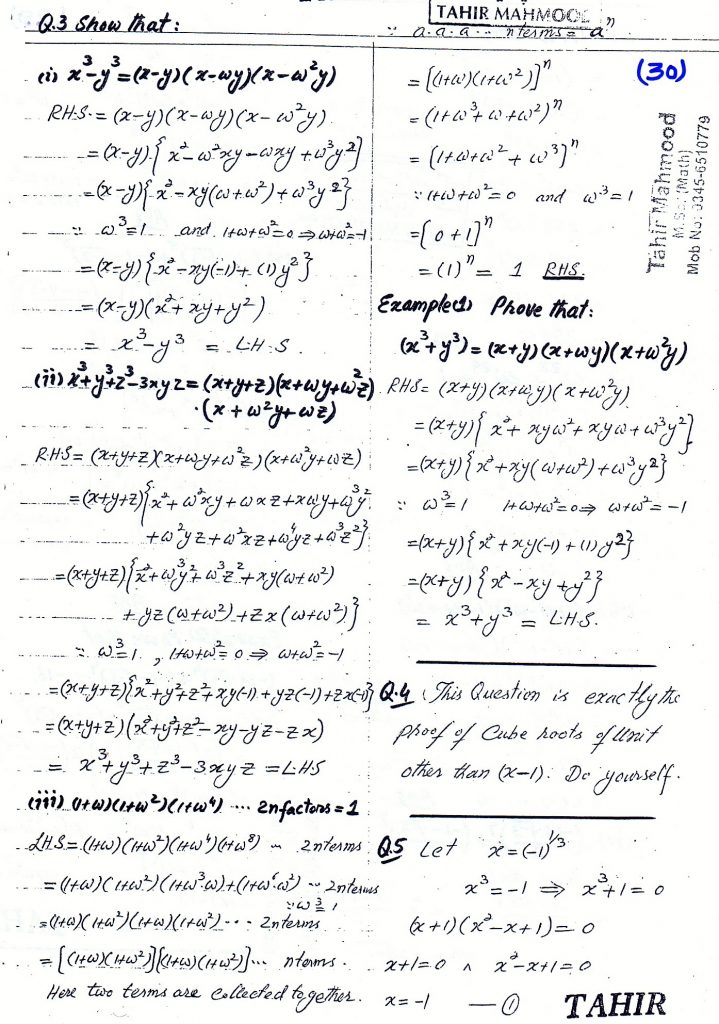 Q.3 Show that:
TAHIR MAHMOOD
∵ a.a.a... n terms = aⁿ
(i) x³-y³=(x-y)(x-ωy)(x-ω²y)
RHS=(x-y)(x-ωy)(x-ω²y)
=(x-y){x²-ω²xy-ωxy+ω³y²}
=(x-y){x²-xy(ω+ω²)+ω³y²}
∵ ω³=1 and 1+ω+ω²=0 ⇒ω+ω²=-1
=(x-y){x²-xy(-1)+(1)y²}
=(x-y)(x²+xy+y²)
= x³-y³ = L.H.S.
(ii) x³+y³+z³-3xyz=(x+y+z)(x+ωy+ω²z)
·(x+ω²y+ωz)
RHS=(x+y+z)(x+ωy+ω²z)(x+ω²y+ωz)
=(x+y+z){x²+ω²xy+ωxz+xωy+ω³y²
+ω²yz+ω²xz+ω⁴yz+ω³z²}
=(x+y+z){x²+ω³y²+ω³z²+xy(ω+ω²)
+yz(ω+ω²)+zx(ω+ω²)}
∵ ω³=1, 1+ω+ω²=0 ⇒ ω+ω²=-1
=(x+y+z){x²+y²+z²+xy(-1)+yz(-1)+zx(-1)}
=(x+y+z)(x²+y²+z²-xy-yz-zx)
= x³+y³+z³-3xyz =LHS
(iii) (1+ω)(1+ω²)(1+ω⁴) ... 2nfactors=1
LHS=(1+ω)(1+ω²)(1+ω⁴)(1+ω⁸) ... 2nterms
=(1+ω)(1+ω²)(1+ω³.ω)+(1+ω⁶.ω²) ... 2nterms
∵ω³=1
=(1+ω)(1+ω²)(1+ω)(1+ω²)... 2nterms
=[(1+ω)(1+ω²)][(1+ω)(1+ω²)]... nterms.
Here two terms are collected together.
=[(1+ω)(1+ω²)]ⁿ
(30)
=(1+ω³+ω+ω²)ⁿ
=(1+ω+ω²+ω³)ⁿ
∵ 1+ω+ω²=0 and ω³=1
=[0+1]ⁿ
=(1)ⁿ= 1 RHS.
Tahir Mahmood
M.Sc. (Math)
Mob No: 0345-6510779
Example(1) Prove that:
(x³+y³)=(x+y)(x+ωy)(x+ω²y)
RHS=(x+y)(x+ωy)(x+ω²y)
=(x+y){x²+xyω²+xyω+ω³y²}
=(x+y){x²+xy(ω+ω²)+ω³y²}
∵ ω³=1 1+ω+ω²=0⇒ ω+ω²=-1
=(x+y){x²+xy(-1)+(1)y²}
=(x+y){x²-xy+y²}
= x³+y³ = LHS.
Q.4 This Question is exactly the
proof of Cube roots of Unit
other than (x-1). Do yourself.
Q.5 Let x=(-1)^1/3
x³=-1 ⇒ x³+1=0
(x+1)(x²-x+1)=0
x+1=0 ∧ x²-x+1=0
x=-1 —①
TAHIR